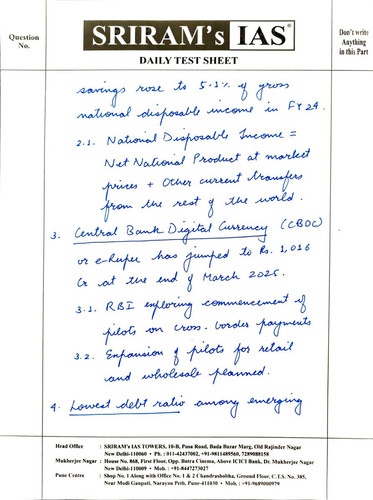 Question
No.
SRIRAM's IAS
DAILY TEST SHEET
Don't write
Anything
in this Part
savings rose to 5.1% of gross
national disposable income in FY24.
2.1. National Disposable Income =
Net National Product at market
prices + Other current transfers
from the rest of the world.
3. Central Bank Digital Currency (CBDC)
or e-Rupee has jumped to Rs. 1,016
Cr at the end of March 2025.
3.1. RBI exploring commencement of
pilots on cross-border payments
3.2. Expansion of pilots for retail
and wholesale planned.
4. Lowest debt ratio among emerging
Head Office : SRIRAM's IAS TOWERS, 10-B, Pusa Road, Bada Bazar Marg, Old Rajinder Nagar
New Delhi-110060 • Ph : 011-42437002, +91-9811489560, 7289088158
Mukherjee Nagar : House No. 868, First Floor, Opp. Batra Cinema, Above ICICI Bank, Dr. Mukherjee Nagar
New Delhi-110009 • Mob. : +91-8447273027
Pune Centre : Shop No. 1 Along with Office No. 1 & 2 Chandrashobha, Ground Floor, C.T.S. No. 385,
Near Modi Ganpati, Narayan Peth, Pune-411030 • Mob. : +91-9689000979